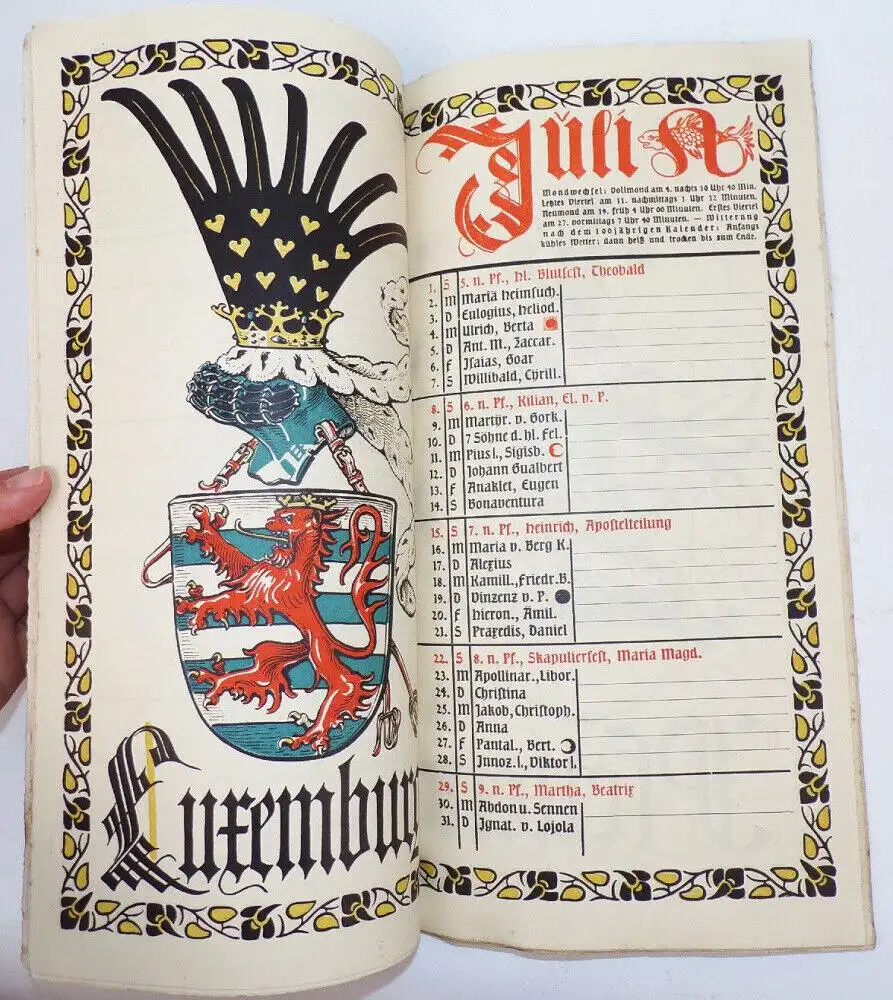 Luxembur
Jüli
Mondwechsel: Vollmond am 4. nachts 10 Uhr 40 Min.
Letztes Viertel am 11. nachmittags 1 Uhr 12 Minuten.
Neumond am 19. früh 4 Uhr 00 Minuten. Erstes Viertel
am 27. vormittags 7 Uhr 40 Minuten. — Witterung
nach dem 100jährigen Kalender: Anfangs
kühles Wetter; dann heiß und trocken bis zum Ende.
1. S 5. n. Pf., hl. Blutfest, Theobald
2. M Mariä Heimsuch.
3. D Eulogius, Heliod.
4. M Ulrich, Berta
5. D Ant. M., Zaccar.
6. F Isaias, Goar
7. S Willibald, Cyrill.
8. S 6. n. Pf., Kilian, El. v. P.
9. M Martyr. v. Gork.
10. D 7 Söhne d. hl. Fel.
11. M Pius I., Sigisb.
12. D Johann Gualbert
13. F Anaklet, Eugen
14. S Bonaventura
15. S 7. n. Pf., Heinrich, Apostelteilung
16. M Maria v. Berg K.
17. D Alexius
18. M Kamill., Friedr. B.
19. D Vinzenz v. P.
20. F Hieron., Ämil.
21. S Praxedis, Daniel
22. S 8. n. Pf., Skapulierfest, Maria Magd.
23. M Apollinar., Libor.
24. D Christina
25. M Jakob, Christoph.
26. D Anna
27. F Pantal., Bert.
28. S Innoz. I., Viktor I.
29. S 9. n. Pf., Martha, Beatrix
30. M Abdon u. Sennen
31. D Ignat. v. Lojola